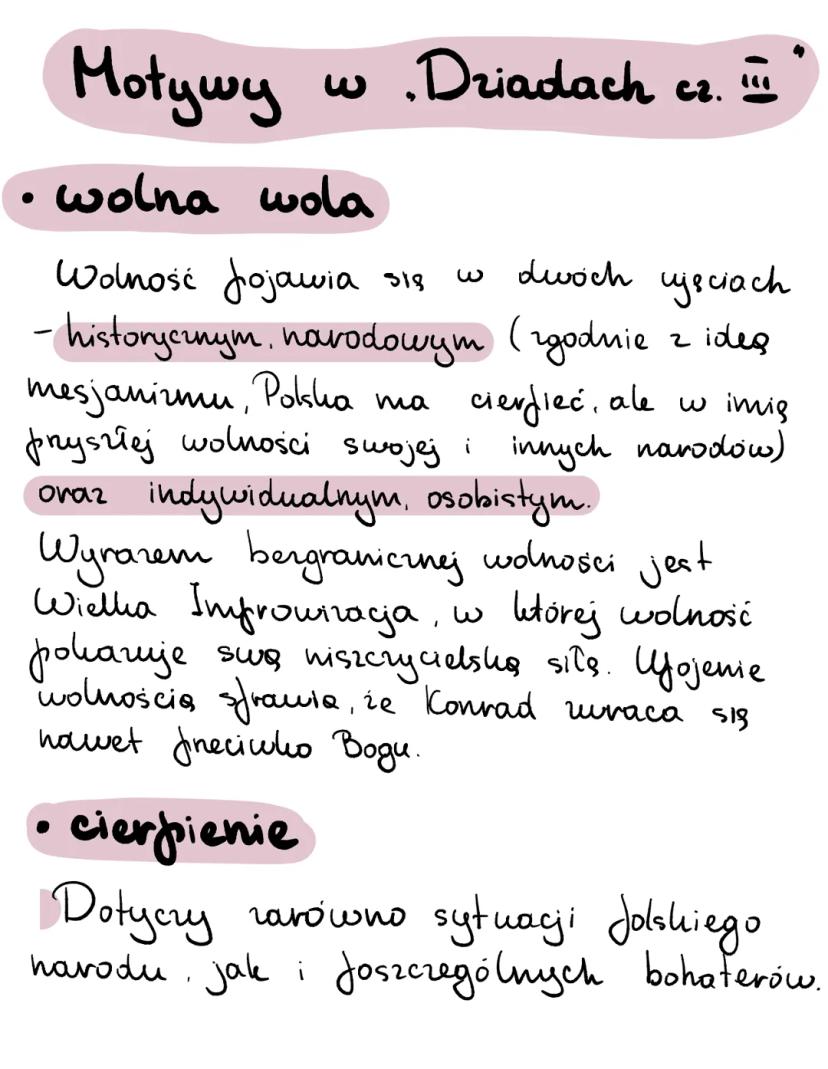 Motywy w „Dziadach cz. III"
• wolna wola
Wolność pojawia się w dwóch ujęciach
- historycznym, narodowym (zgodnie z ideą
mesjanizmu, Polska ma cierpieć, ale w imię
przyszłej wolności swojej i innych narodów)
oraz indywidualnym, osobistym.
Wyrazem bezgranicznej wolności jest
Wielka Improwizacja, w której wolność
pokazuje swą niszczycielską siłę. Upojenie
wolnością sprawia, że Konrad zwraca się
nawet przeciwko Bogu.
• cierpienie
Dotyczy zarówno sytuacji polskiego
narodu, jak i poszczególnych bohaterów.